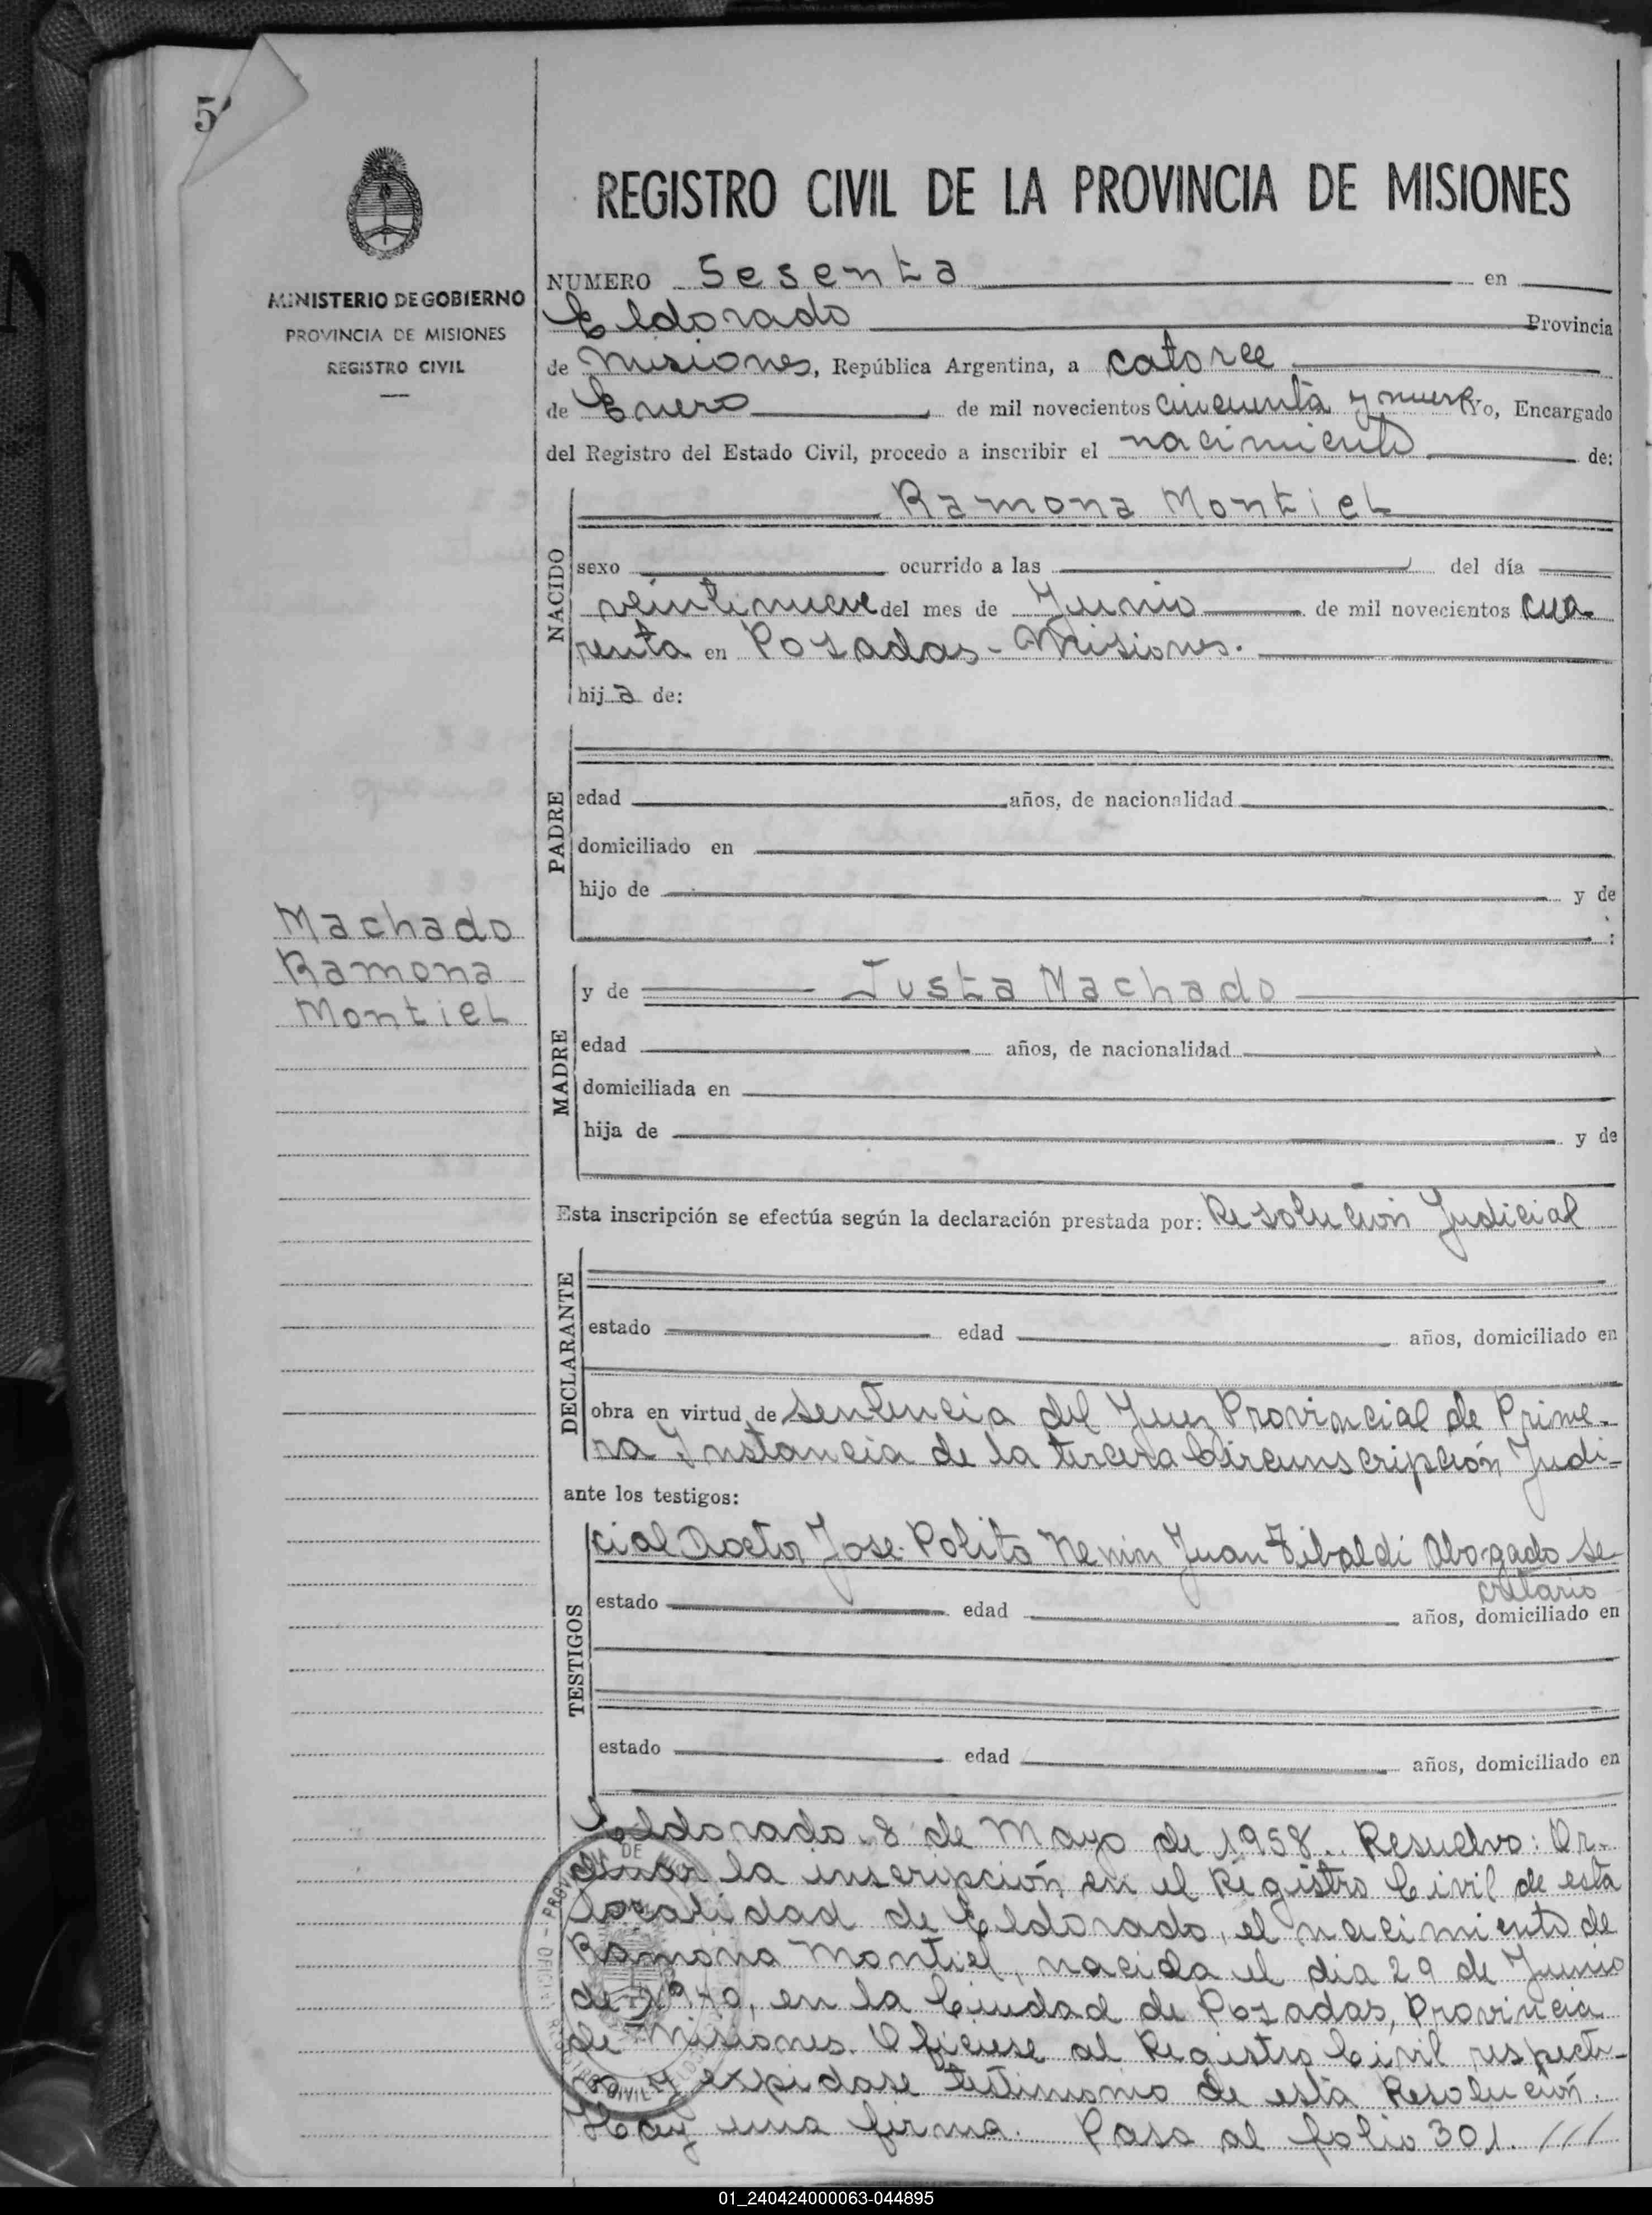 5
REGISTRO CIVIL DE LA PROVINCIA DE MISIONES
MINISTERIO DE GOBIERNO
PROVINCIA DE MISIONES
REGISTRO CIVIL
NUMERO Sesenta en
Eldorado Provincia
de Misiones, República Argentina, a catorce
de Enero de mil novecientos cincuenta y nueve Yo, Encargado
del Registro del Estado Civil, procedo a inscribir el nacimiento de:
Ramona Montiel
NACIDO
sexo ocurrido a las del día
veintinueve del mes de Junio de mil novecientos cua-
renta en Posadas - Misiones.
hija de:
PADRE
edad años, de nacionalidad
domiciliado en
hijo de y de
:
Machado
Ramona
Montiel
MADRE
y de Justa Machado
edad años, de nacionalidad
domiciliada en
hija de y de
Esta inscripción se efectúa según la declaración prestada por: Resolución Judicial
DECLARANTE
estado edad años, domiciliado en
obra en virtud de sentencia del Juez Provincial de Prime-
ra Instancia de la tercera Circunscripción Judi-
ante los testigos:
cial Doctor Jose Polito Juan Tibaldi Abogado Se
cretario
TESTIGOS
estado edad años, domiciliado en
estado edad años, domiciliado en
Eldorado 8 de Mayo de 1958. Resuelvo: Or-
denar la inscripción en el Registro Civil de esta
localidad de Eldorado, el nacimiento de
Ramona Montiel, nacida el dia 29 de Junio
de 1940, en la Ciudad de Posadas, Provincia
de Misiones. Oficiese al Registro Civil respecti-
vo y expidase testimonio de esta Resolución.
Hay una firma. Pasa al folio 301. ///
01_240424000063-044895